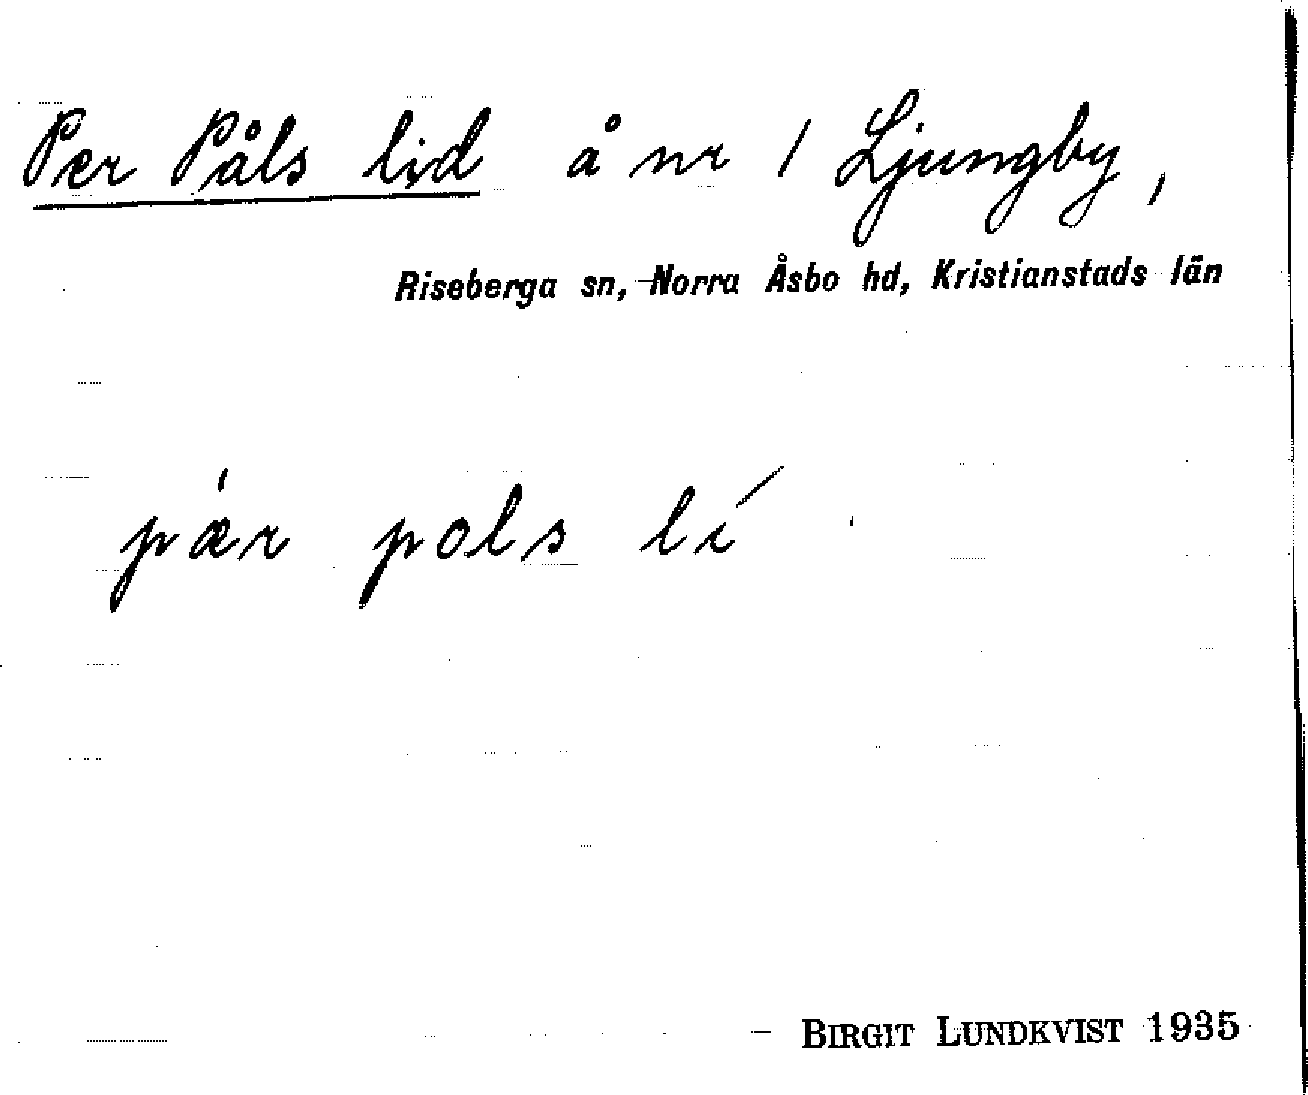 Per Påls lid å nr 1 Ljungby,
Riseberga sn, Norra Åsbo hd, Kristianstads län
pǽr pols lí
BIRGIT LUNDKVIST 1935